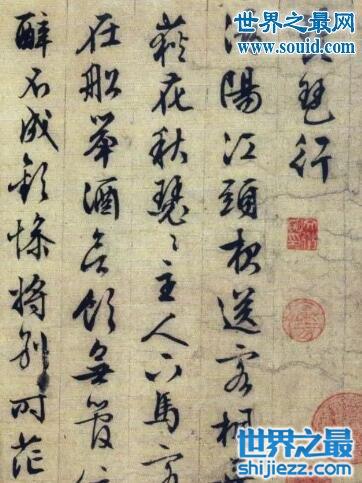 世界之最网
www.souid.com
琶行
潯陽江頭夜送客楓
荻花秋瑟々主人下馬客
在船舉酒欲飲無管
醉不成歡慘將別時茫
世界之最
shijiezz.com